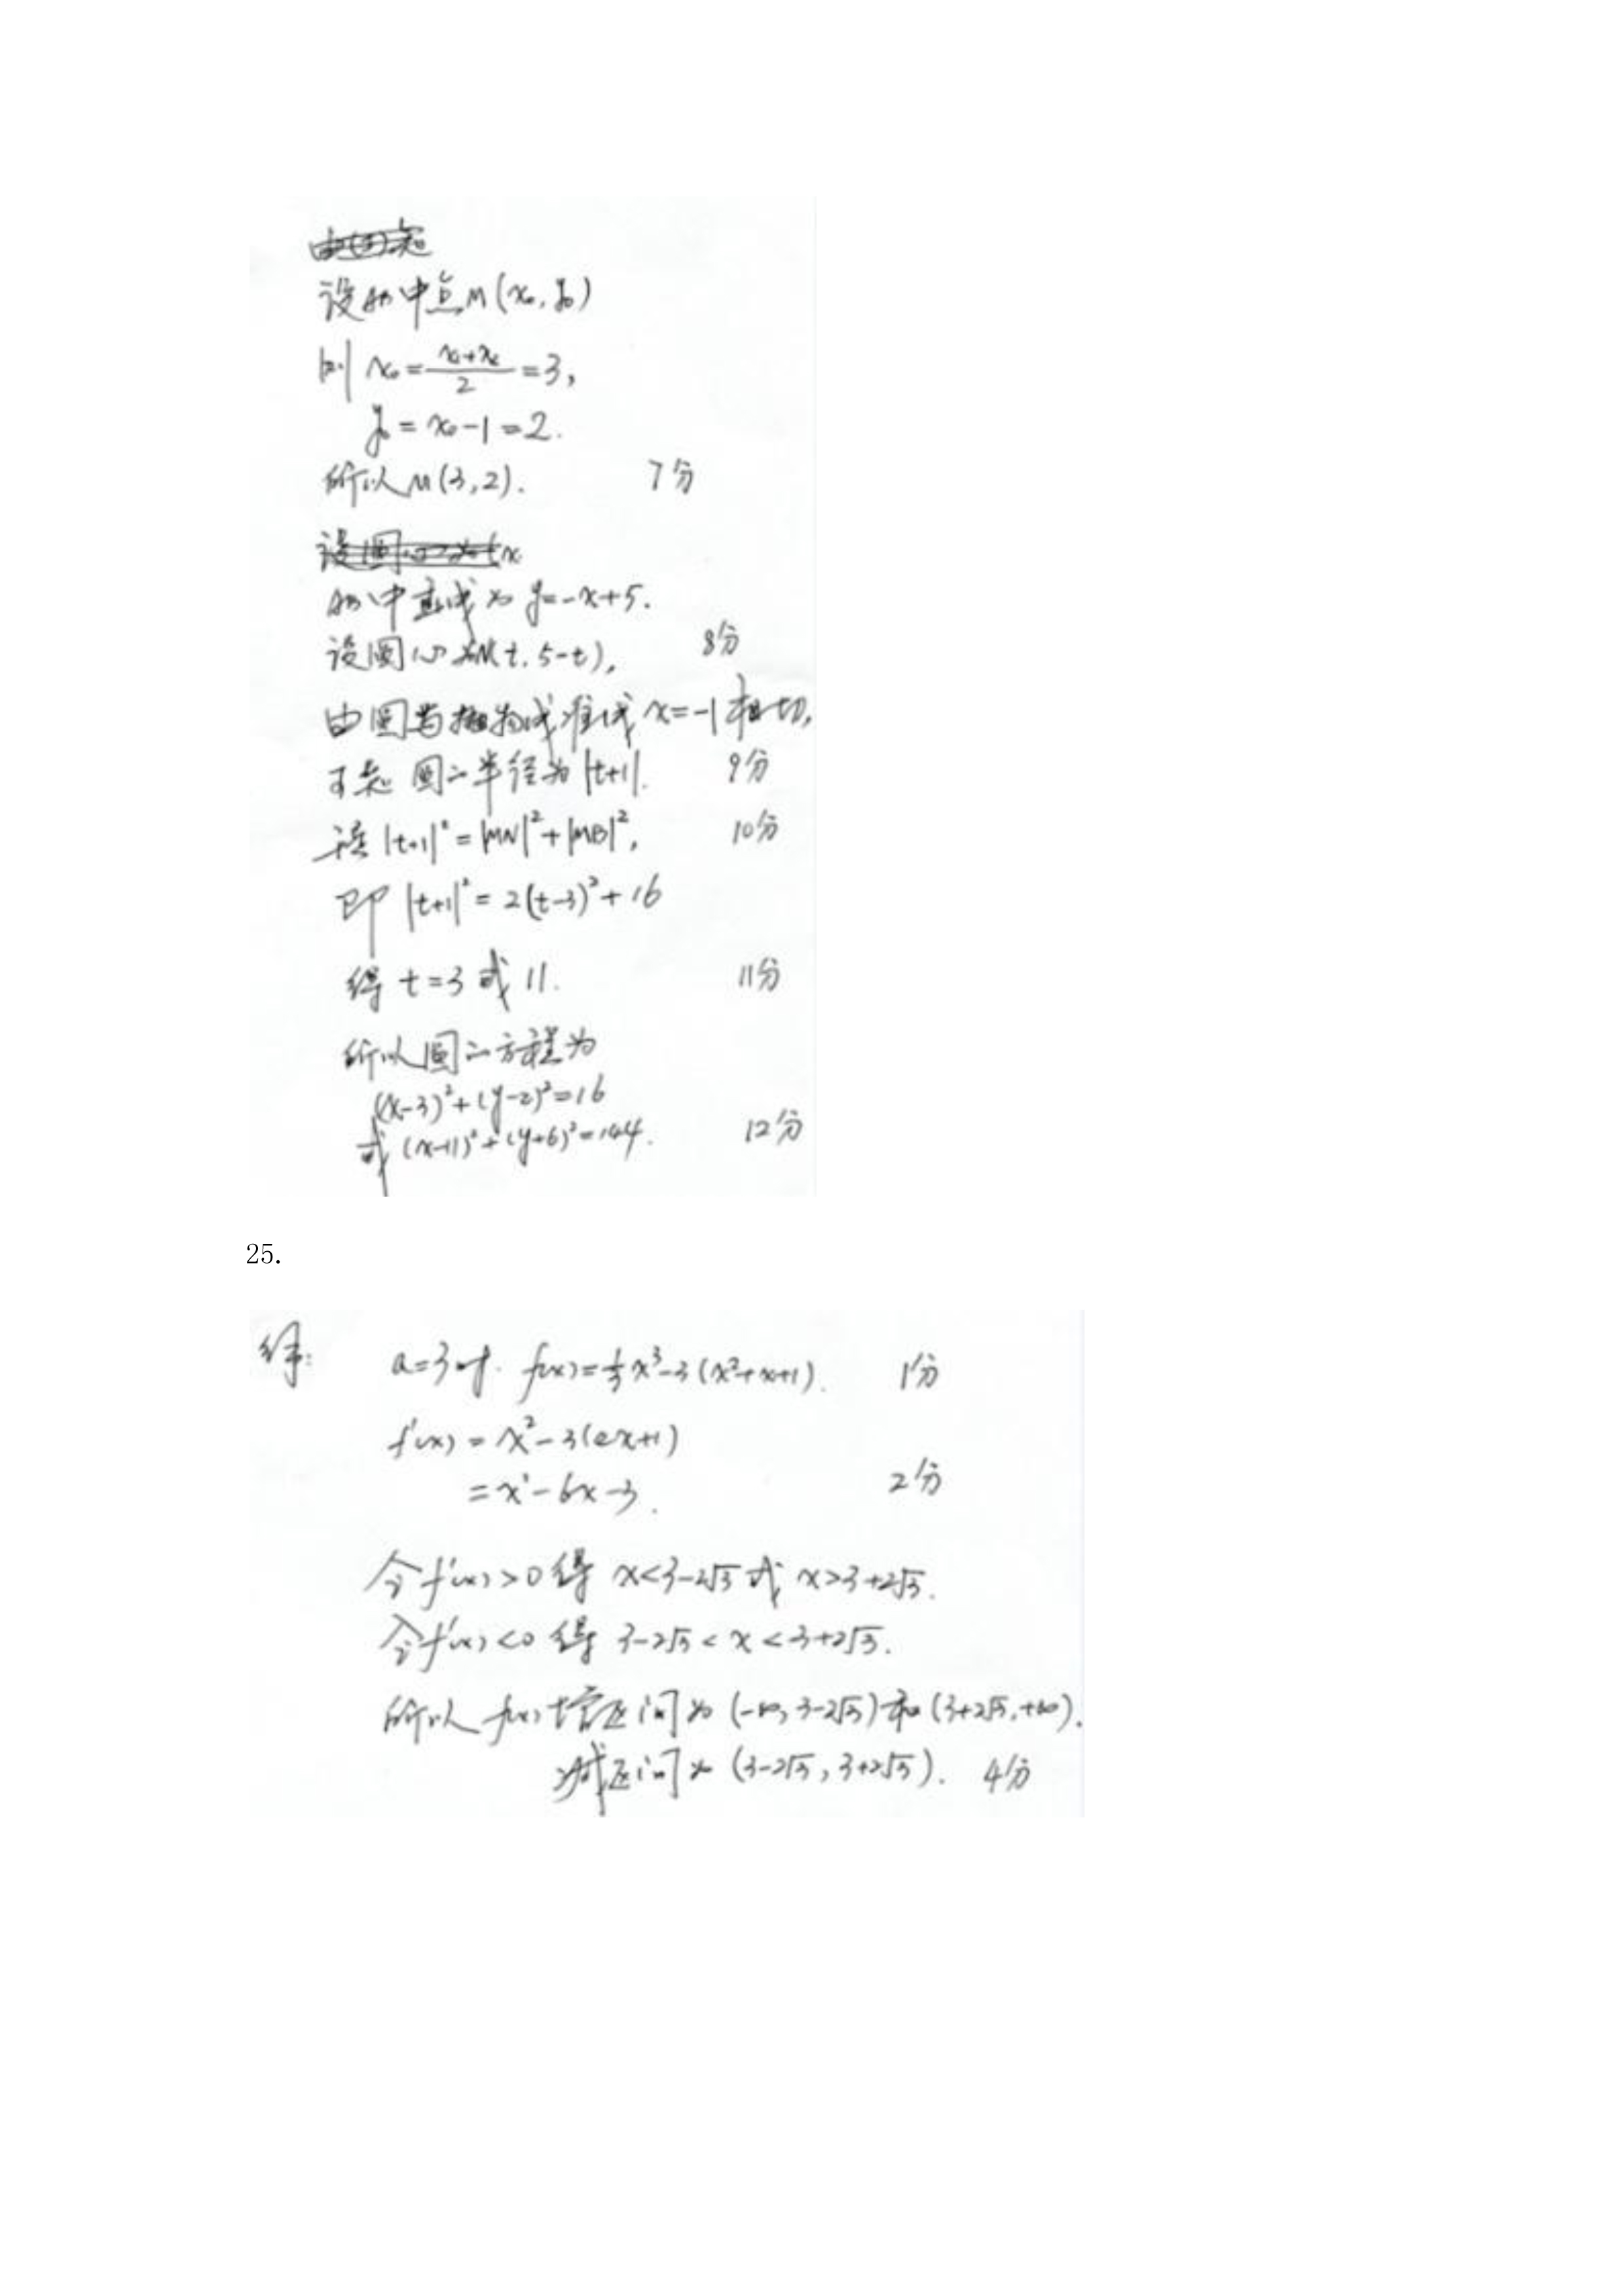 设AB中点M(x₀,y₀)
则 x₀=(x₁+x₂)/2=3,
y₀=x₀-1=2.
所以M(3,2). 7分
AB中垂线为 y=-x+5.
设圆心为N(t,5-t), 8分
由圆与抛物线准线x=-1相切,
可知 圆的半径为|t+1|. 9分
|t+1|²=|MN|²+|MB|², 10分
即 |t+1|²=2(t-3)²+16
得 t=3或11. 11分
所以圆的方程为
(x-3)²+(y-2)²=16
或 (x-11)²+(y+6)²=144. 12分
25.
解: a=3时. f(x)=⅓x³-3(x²+x+1). 1分
f'(x)=x²-3(2x+1)
=x²-6x-3. 2分
令f'(x)>0得 x<3-2√3或 x>3+2√3.
令f'(x)<0得 3-2√3<x<3+2√3.
所以f(x)增区间为(-∞,3-2√3)和(3+2√3,+∞).
减区间为(3-2√3,3+2√3). 4分